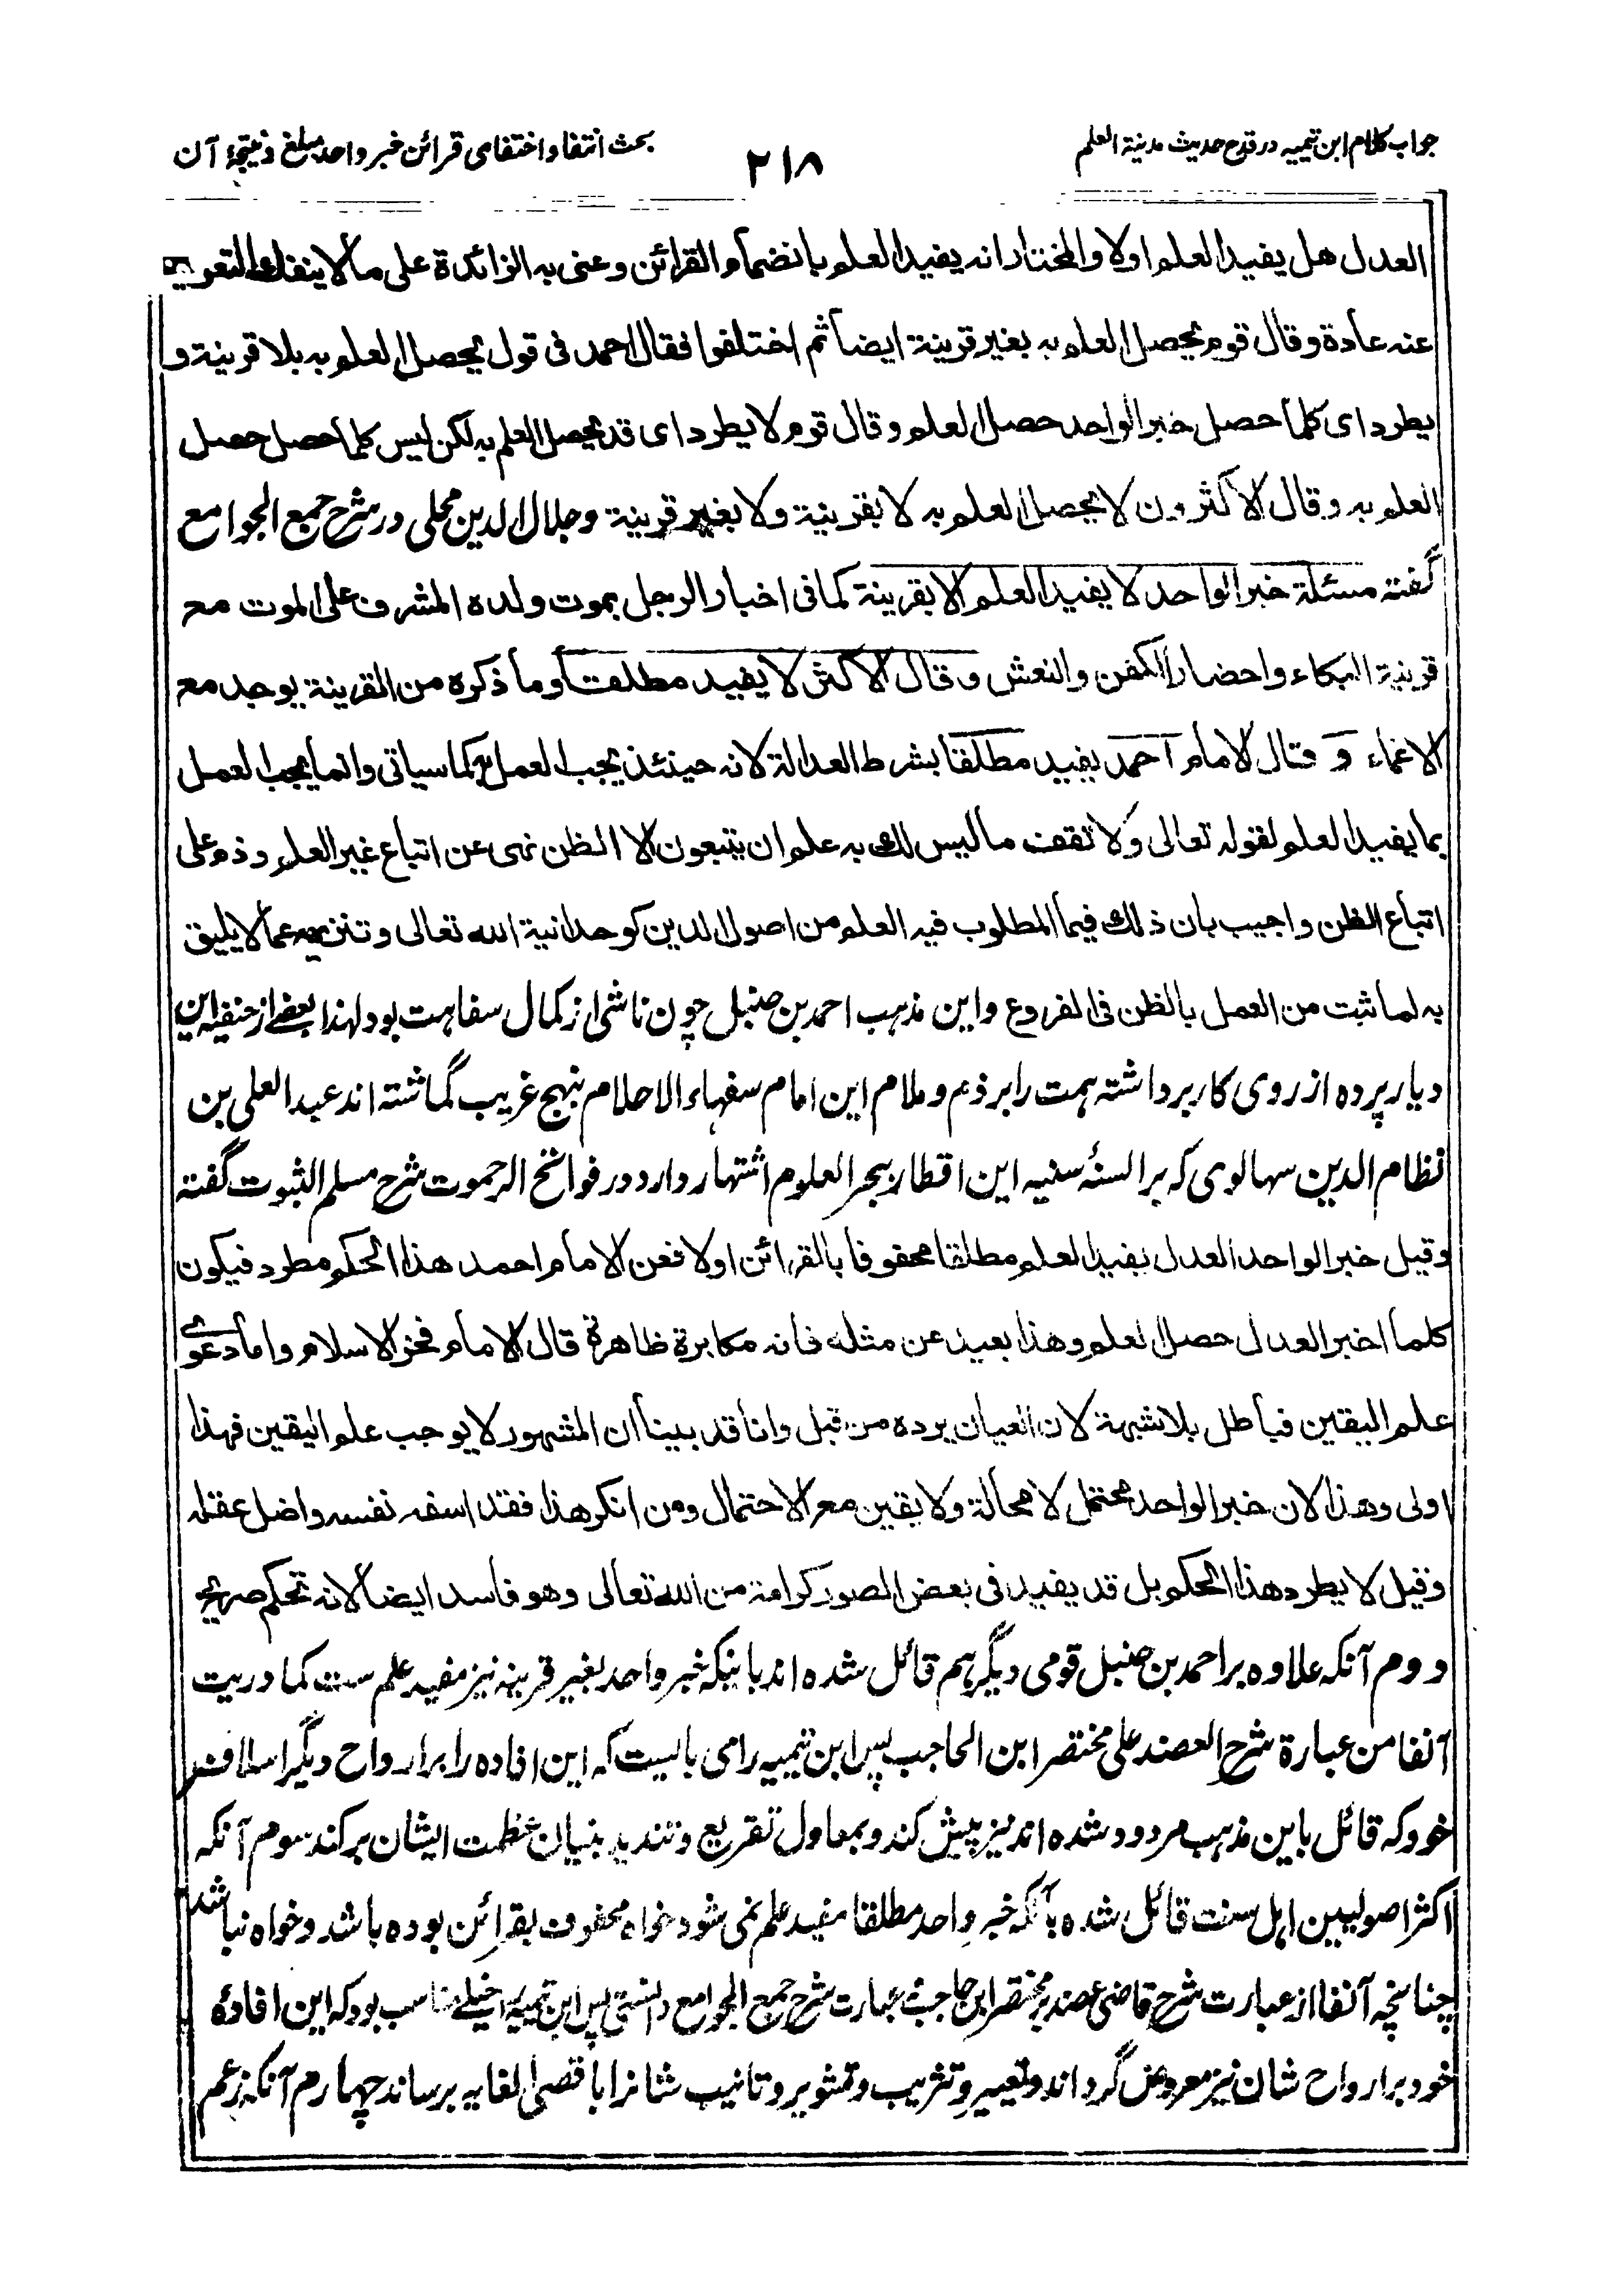 جواب کلام ابن تیمیه در قدح حدیث مدینة العلم
۲۱۸
بحث انتفا و اختفای قرائن خبر واحد مبلغ و نتیجهٔ آن
العدل هل یفید العلم او لا والمختار انه یفید العلم بانضمام القرائن وعنی به الزائدة علی ما لا ینفک التعریف
عنه عادة وقال قوم یحصل العلم به بغیر قرینة ایضا ثم اختلفوا فقال احمد فی قول یحصل العلم به بلا قرینة و
یطرد ای کلما حصل خبر الواحد حصل العلم وقال قوم لا یطرد ای قد یحصل العلم به لکن لیس کلما حصل حصل
العلم به وقال الاکثرون لا یحصل العلم به لا بقرینة ولا بغیر قرینة وجلال الدین محلی در شرح جمع الجوامع
گفته مسئلة خبر الواحد لا یفید العلم الا بقرینة کما فی اخبار الرجل بموت ولده المشرف علی الموت مع
قرینة البکاء واحضار الکفن والنعش وقال الاکثر لا یفید مطلقا وما ذکره من القرینة یوجد مع
الاغماء و قال الامام احمد یفید مطلقا بشرط العدالة لانه حینئذ یجب العمل به کما سیاتی وانما یجب العمل
بما یفید العلم لقوله تعالی ولا تقف ما لیس لک به علم ان یتبعون الا الظن نهی عن اتباع غیر العلم وذم علی
اتباع الظن واجیب بان ذلک فیما المطلوب فیه العلم من اصول الدین کوحدانیة الله تعالی وتنزیهه عما لا یلیق
به لما ثبت من العمل بالظن فی الفروع واین مذهب احمد بن حنبل چون ناشی از کمال سفاهت بود لهذا بعضے از حنفیه این
دیار پرده از روی کار برداشته همت را بر ذم وملام این امام سفهاء الاحلام بنهج غریب گماشته اند عبد العلی بن
نظام الدین سهالوی که بر السنهٔ سنیه این اقطار ببحر العلوم اشتهار دارد در فواتح الرحموت شرح مسلم الثبوت گفته
وقیل خبر الواحد العدل یفید العلم مطلقا محفوفا بالقرائن اولا فعن الامام احمد هذا الحکم مطرد فیکون
کلما اخبر العدل حصل العلم وهذا بعید عن مثله فانه مکابرة ظاهرة قال الامام فخر الاسلام واما دعوے
علم الیقین فباطل بلا شبهة لان العیان یرده من قبل وانا قد بینا ان المشهور لا یوجب علم الیقین فهذا
اولی وهذا لان خبر الواحد محتمل لا محالة ولا یقین مع الاحتمال ومن انکر هذا فقد اسفه نفسه واضل عقله
وقیل لا یطرد هذا الحکم بل قد یفید فی بعض الصور کرامة من الله تعالی وهو فاسد ایضا لانه تحکم صریح
دوم آنکه علاوه بر احمد بن حنبل قومی دیگر هم قائل شده اند باینکه خبر واحد بغیر قرینه نیز مفید علم ست کما دریت
آنفا من عبارة شرح العضد علی مختصر ابن الحاجب پس ابن تیمیه را می بایست که این افاده را بر ارواح دیگر اسلاف
خود که قائل باین مذهب مردود شده اند نیز پیش کند و بمعاول تقریع و تندید بنیان عظمت ایشان برکند سوم آنکه
اکثر اصولیین اهل سنت قائل شده بآنکه خبر واحد مطلقا مفید علم نمی شود خواه محفوف بقرائن بوده باشد وخواه نباشد
چنانچه آنفا از عبارت شرح قاضی عضد بر مختصر ابن حاجب و عبارت شرح جمع الجوامع دانستی پس ابن تیمیه را خیلے مناسب بود که این افادهٔ
خود بر ارواح شان نیز معروض گرداند و تعییر و تثریب و تشویر و تانیب شانرا باقصی الغایه برساند چهارم آنکه زعم